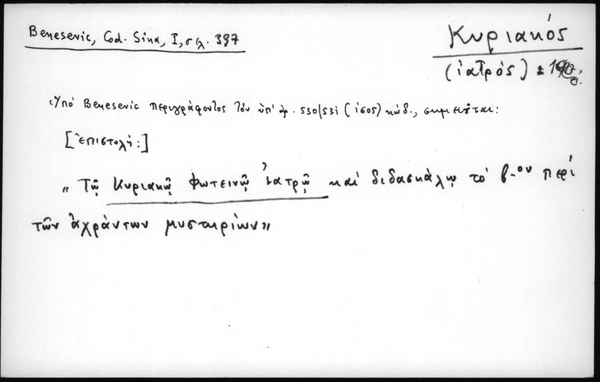 Benesevic, Cod. Sina, I, σελ. 397
Κυριακός
(ἰατρός) ±
Ὑπό Benesevic περιγράφοντος τόν ὑπ' ἀρ. 530/531 (ἰσος) κώδ., σημειοῦται:
[Ἐπιστολή:]
„ Τῷ Κυριακῷ Φωτεινῷ Ἰατρῷ καί διδασκάλῳ τό β-ον περί
τῶν ἀχράντων μυστηρίων"